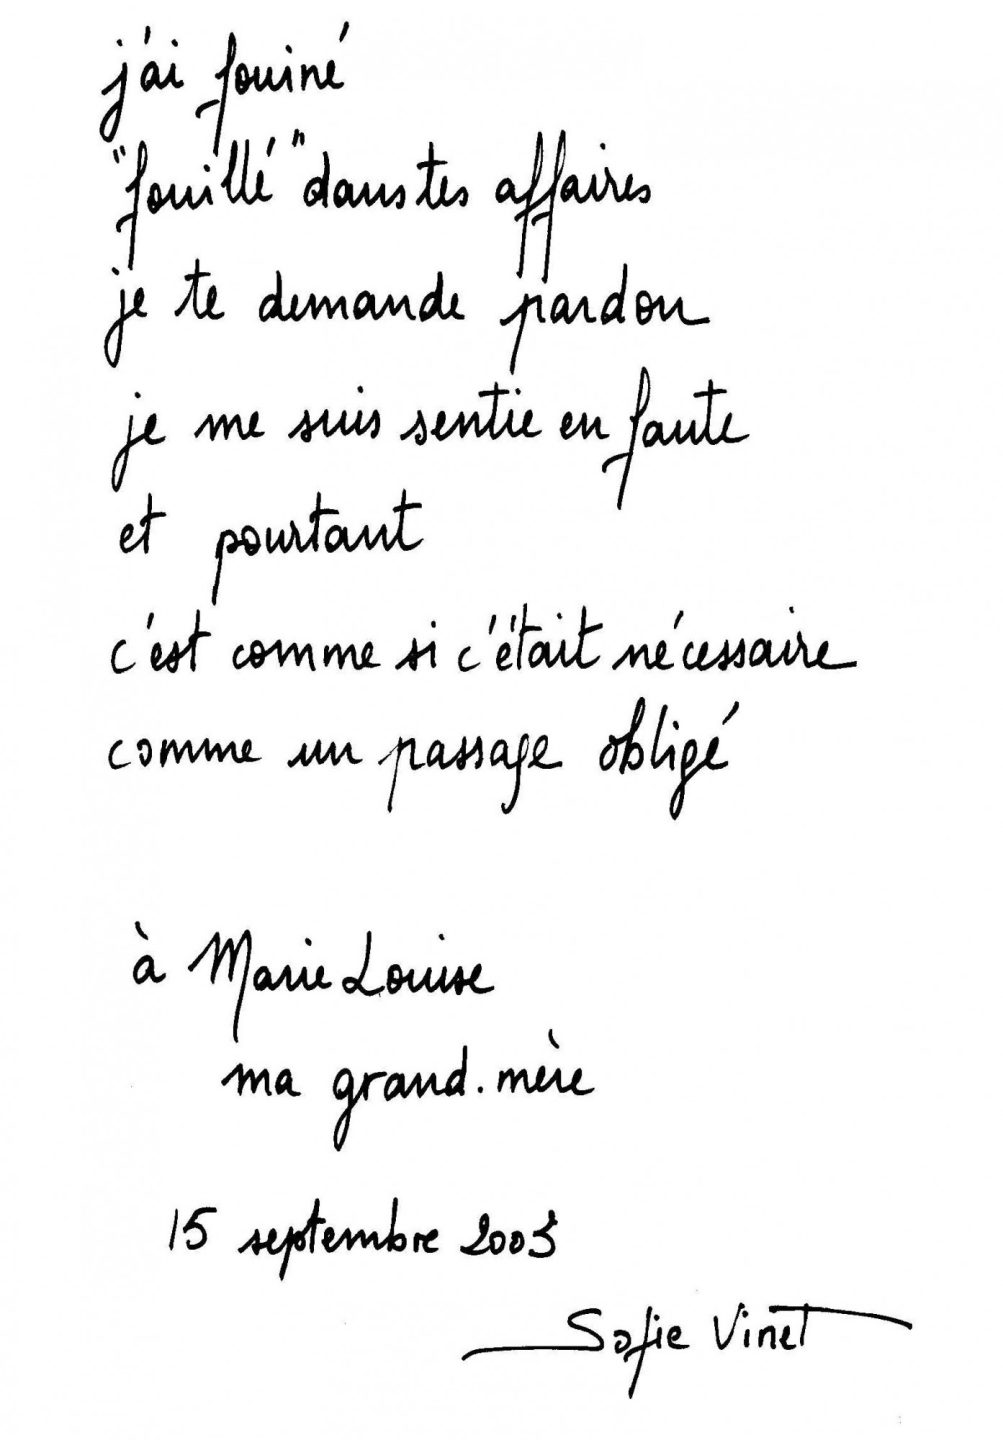 j'ai fouiné
"fouillé" dans tes affaires
je te demande pardon
je me suis sentie en faute
et pourtant
c'est comme si c'était nécessaire
comme un passage obligé
à Marie Louise
ma grand-mère
15 septembre 2003
Sofie Vinet